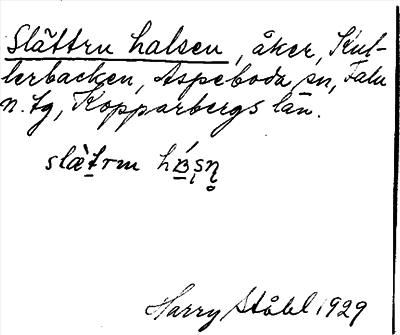 Slättru halsen, åker, Kul-
lerbacken, Aspeboda sn, Falu
n. tg, Kopparbergs län.
slät̠rm
Harry Ståhl 1929